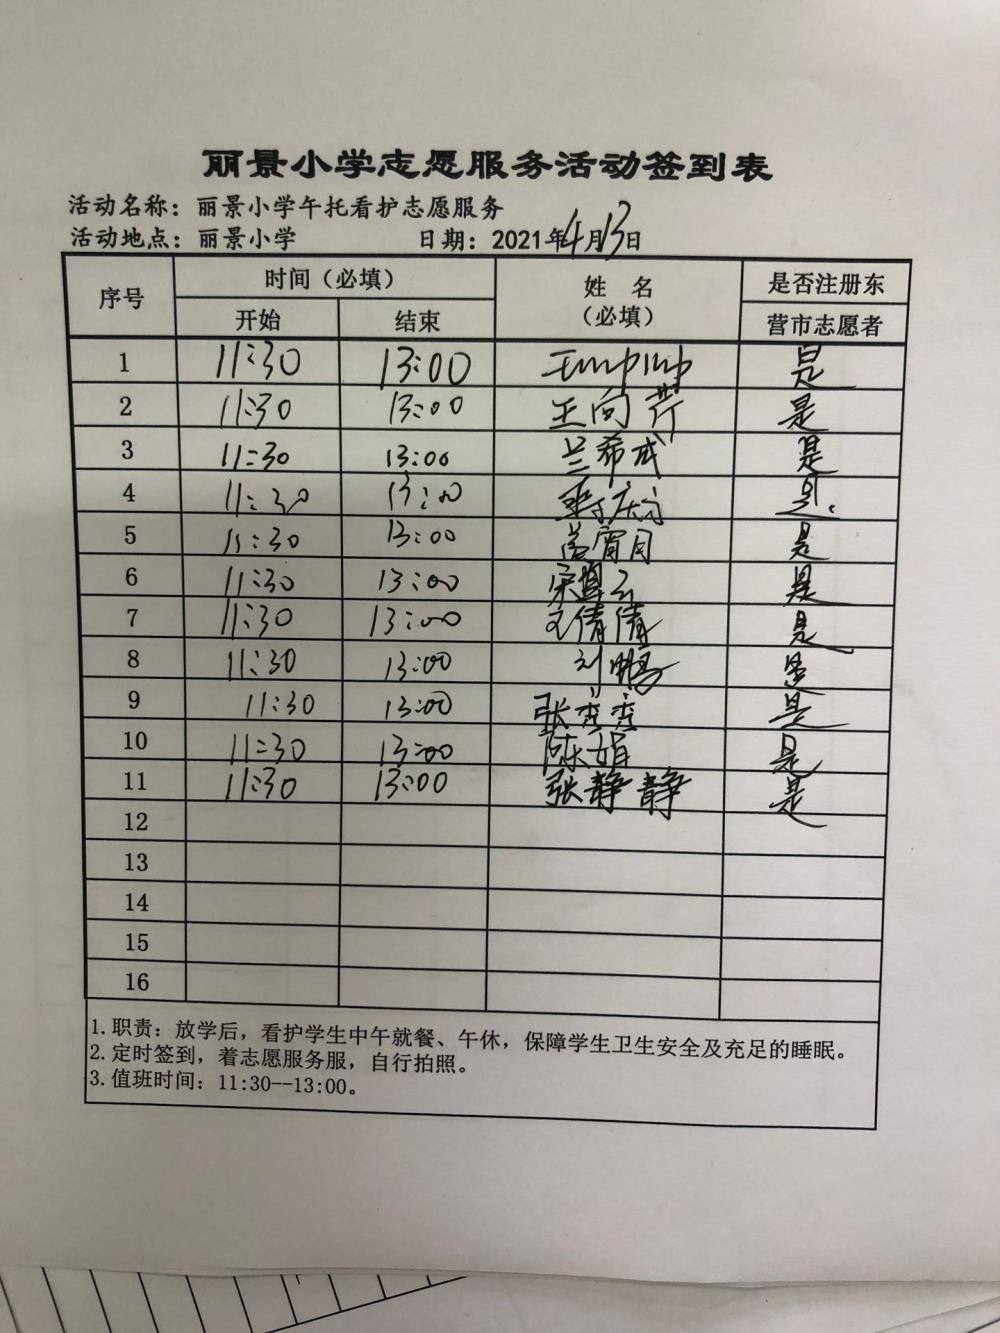 丽景小学志愿服务活动签到表
活动名称：丽景小学午托看护志愿服务
活动地点：丽景小学 日期：2021年4月13日
序号 时间（必填） 姓 名 （必填） 是否注册东营市志愿者
开始 结束
1 11:30 13:00 是
2 11:30 13:00 王向芹 是
3 11:30 13:00 兰希成 是
4 11:30 13:00 是
5 11:30 13:00 是
6 11:30 13:00 是
7 11:30 13:00 王倩倩 是
8 11:30 13:00 刘鹏 是
9 11:30 13:00 张弯弯 是
10 11:30 13:00 陈娟 是
11 11:30 13:00 张静静 是
12
13
14
15
16
1.职责：放学后，看护学生中午就餐、午休，保障学生卫生安全及充足的睡眠。
2.定时签到，着志愿服务服，自行拍照。
3.值班时间：11:30--13:00。